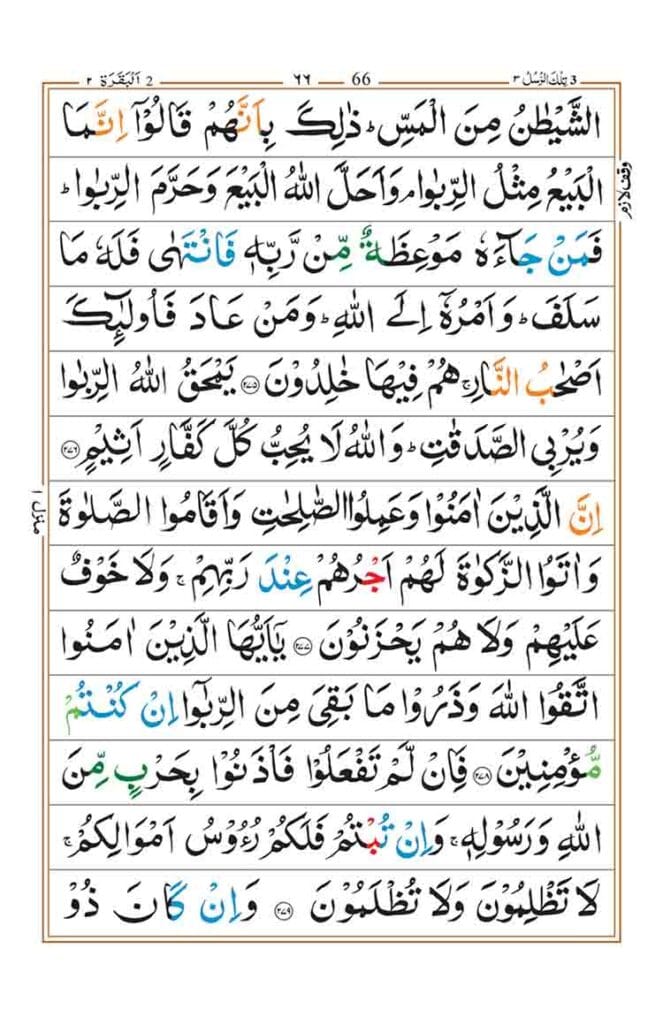 3 تِلْكَ الرُّسُلُ ٣
66 ٦٦
2 اَلْبَقَرَة ٢
الشَّيْطٰنُ مِنَ الْمَسِّ ؕ ذٰلِكَ بِاَنَّهُمْ قَالُوْۤا اِنَّمَا
الْبَيْعُ مِثْلُ الرِّبٰوا ۘ وَاَحَلَّ اللّٰهُ الْبَيْعَ وَحَرَّمَ الرِّبٰوا ؕ
وقف لازم
فَمَنْ جَآءَهٗ مَوْعِظَةٌ مِّنْ رَّبِّهٖ فَانْتَهٰى فَلَهٗ مَا
سَلَفَ ؕ وَاَمْرُهٗۤ اِلَى اللّٰهِ ؕ وَمَنْ عَادَ فَاُولٰٓئِكَ
اَصْحٰبُ النَّارِ ۚ هُمْ فِيْهَا خٰلِدُوْنَ ۝٢٧٥ يَمْحَقُ اللّٰهُ الرِّبٰوا
وَيُرْبِى الصَّدَقٰتِ ؕ وَاللّٰهُ لَا يُحِبُّ كُلَّ كَفَّارٍ اَثِيْمٍ ۝٢٧٦
اِنَّ الَّذِيْنَ اٰمَنُوْا وَعَمِلُوا الصّٰلِحٰتِ وَاَقَامُوا الصَّلٰوةَ
منزل ١
وَاٰتَوُا الزَّكٰوةَ لَهُمْ اَجْرُهُمْ عِنْدَ رَبِّهِمْ ۚ وَلَا خَوْفٌ
عَلَيْهِمْ وَلَا هُمْ يَحْزَنُوْنَ ۝٢٧٧ يٰۤاَيُّهَا الَّذِيْنَ اٰمَنُوا
اتَّقُوا اللّٰهَ وَذَرُوْا مَا بَقِىَ مِنَ الرِّبٰۤوا اِنْ كُنْتُمْ
مُّؤْمِنِيْنَ ۝٢٧٨ فَاِنْ لَّمْ تَفْعَلُوْا فَاْذَنُوْا بِحَرْبٍ مِّنَ
اللّٰهِ وَرَسُوْلِهٖ ۚ وَاِنْ تُبْتُمْ فَلَكُمْ رُءُوْسُ اَمْوَالِكُمْ ۚ
لَا تَظْلِمُوْنَ وَلَا تُظْلَمُوْنَ ۝٢٧٩ وَاِنْ كَانَ ذُوْ